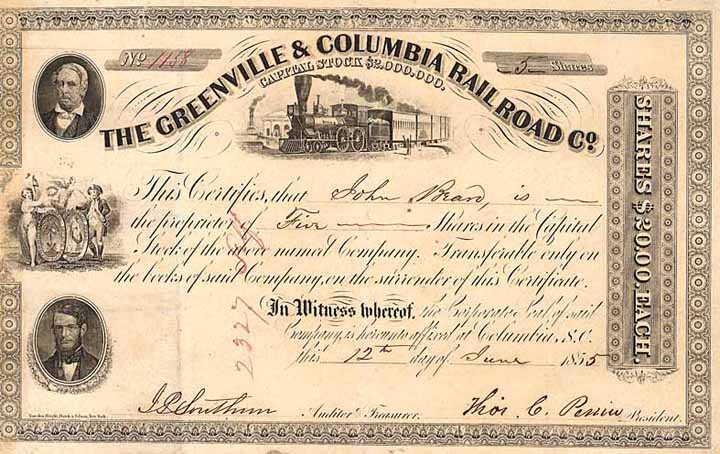 No 1458
5 Shares
THE GREENVILLE & COLUMBIA RAIL ROAD Co.
CAPITAL STOCK $2.000.000.
SHARES $20.00. EACH.
This Certifies, that John Beard, is
the proprietor of Five Shares in the Capital
Stock of the above named Company. Transferable only on
the books of said Company, on the surrender of this Certificate.
In Witness whereof, the Corporate Seal of said
Company, is hereunto affixed at Columbia, S.C.
this 12th day of June 1855
2327
Auditor & Treasurer.
Thos. C. Perrin President.